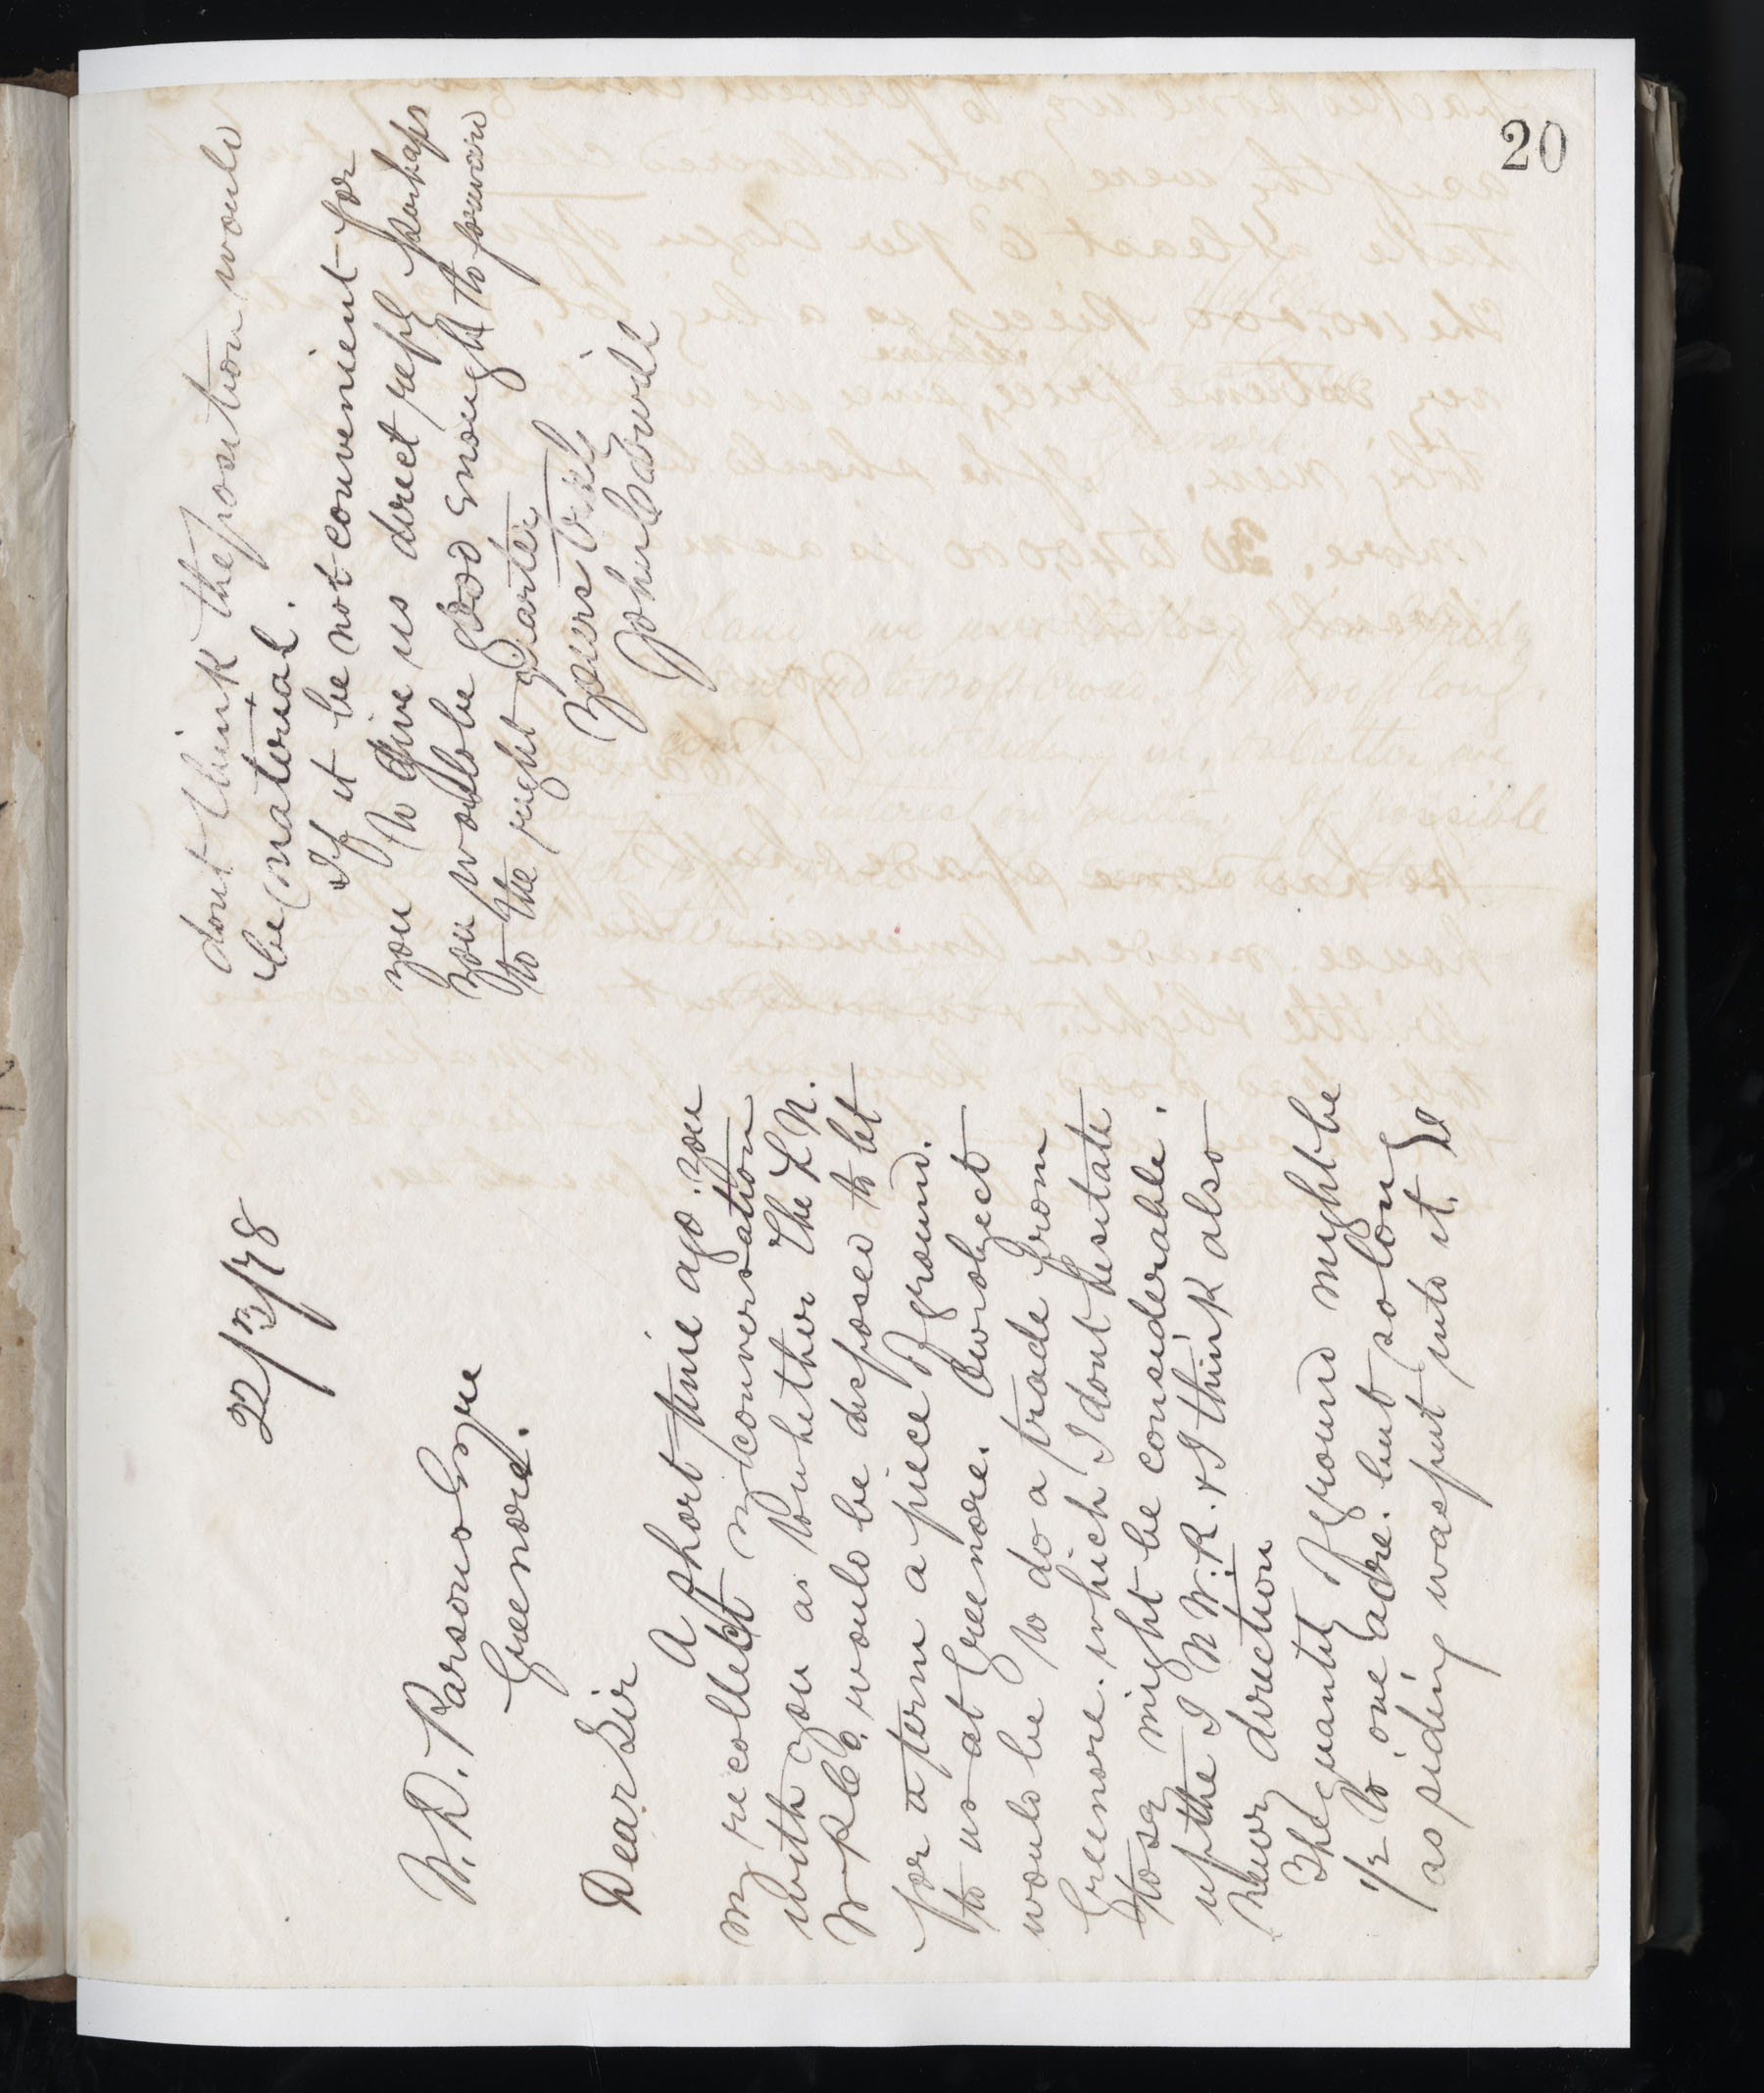 20
22/3/78
W. D. Parsons Esqre
Greenore.
Dear Sir
A short time ago. you
my recollect my conversation
with you as to whether the L N.
W R Co. would be disposed to let
for a term a piece of ground.
to us at Greenore. Our object
would be to do a trade from
Greenore. which I dont hesitate
to say might be considerable.
up the I N W. R. & I think also
Newry direction
The quantity of ground might be
1/2 to one acre. but so long
as siding was put into it. I
dont think the position would
be material.
If it be not convenient for
you to give us direct reply perhaps
you would be good enough to forward
to the right quarter
Yours truly
John